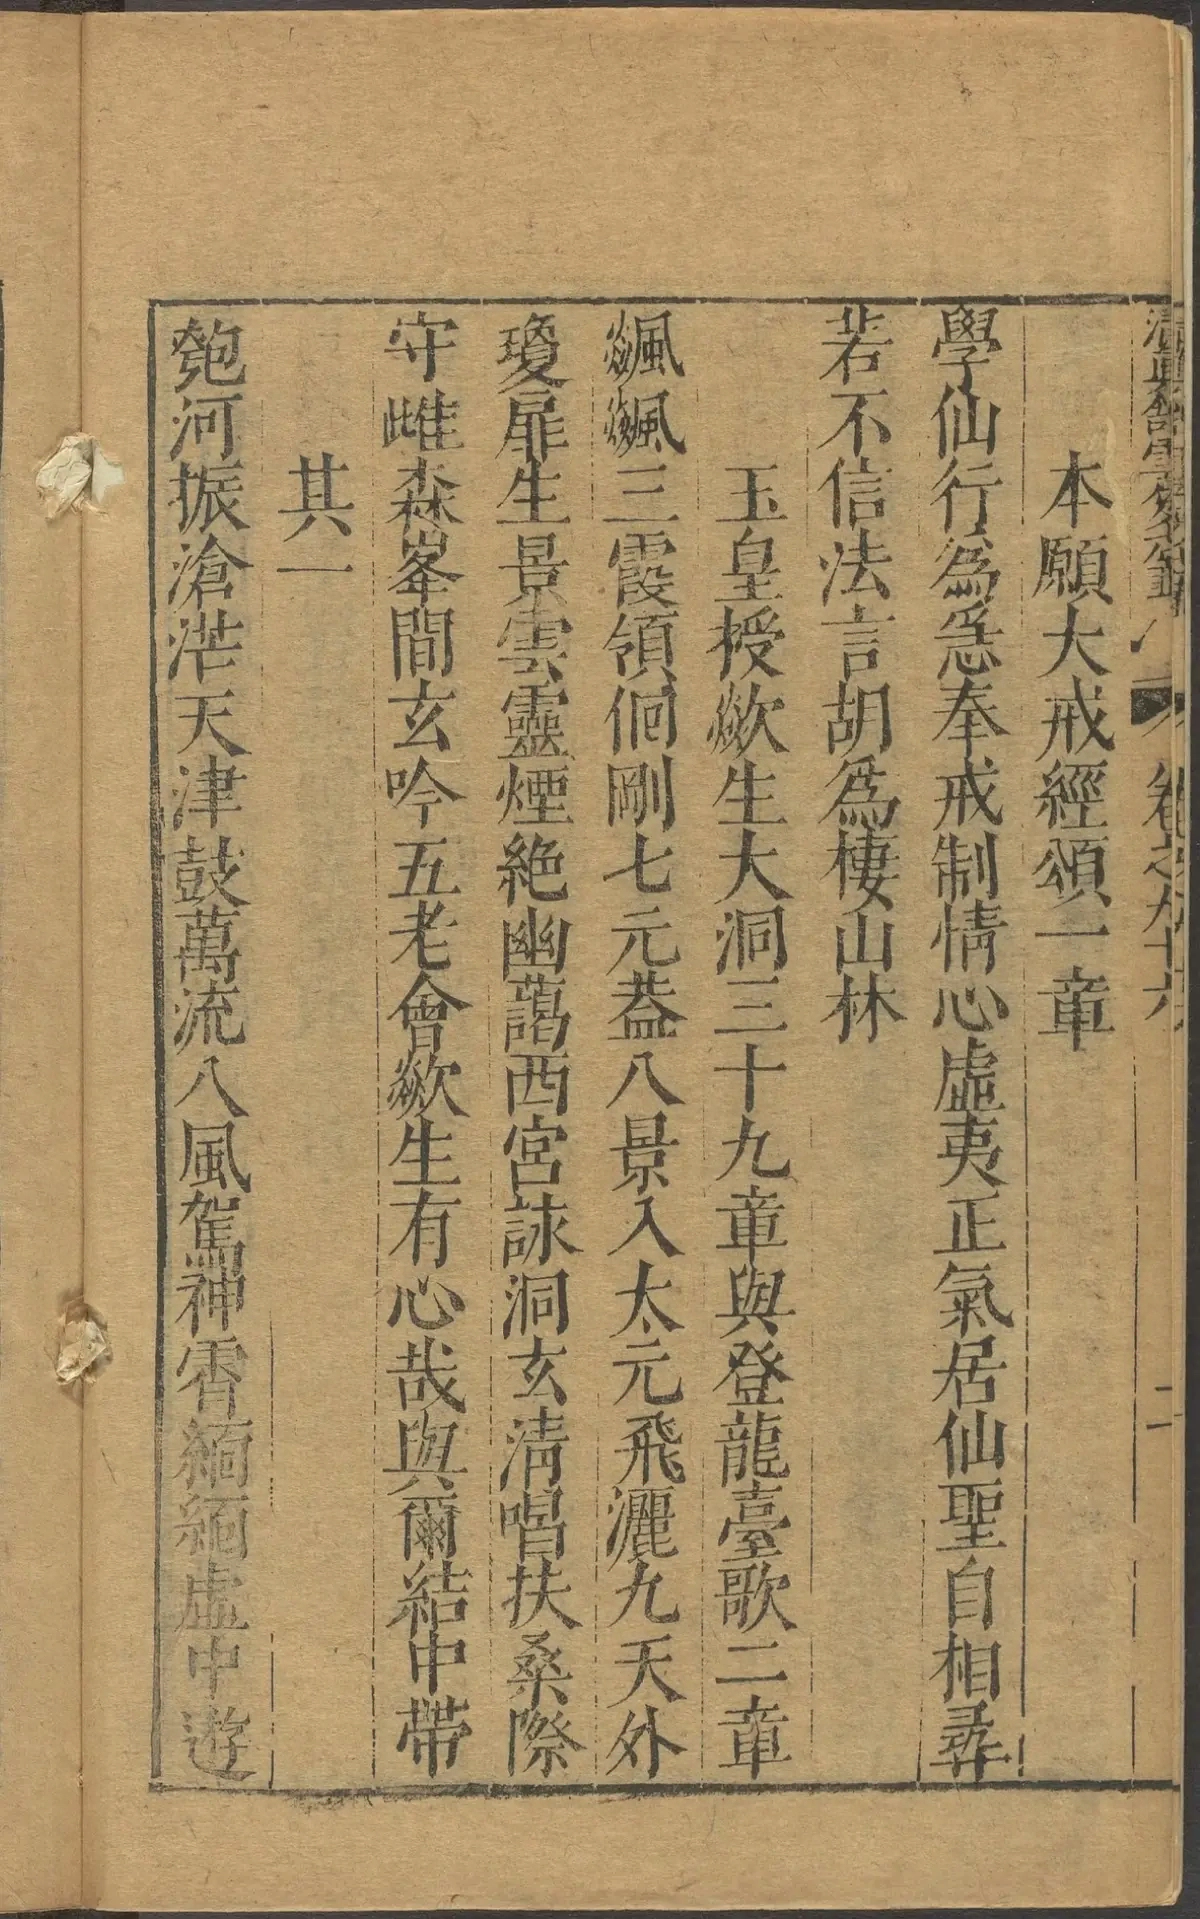 卷之九十六 二
本願大戒經頌一章
學仙行為急奉戒制情心虛夷正氣居仙聖自相尋
若不信法言胡爲棲山林
玉皇授歘生大洞三十九章與登龍臺歌二章
飇飇三霞領佪剛七元葢八景入太元飛灑九天外
瓊扉生景雲靈煙絶幽藹西宮詠洞玄清唱扶桑際
守雌森峯間玄吟五老會歘生有心哉與爾結中帶
其一
匏河振滄茫天津鼓萬流八風駕神霄緬緬虛中遊